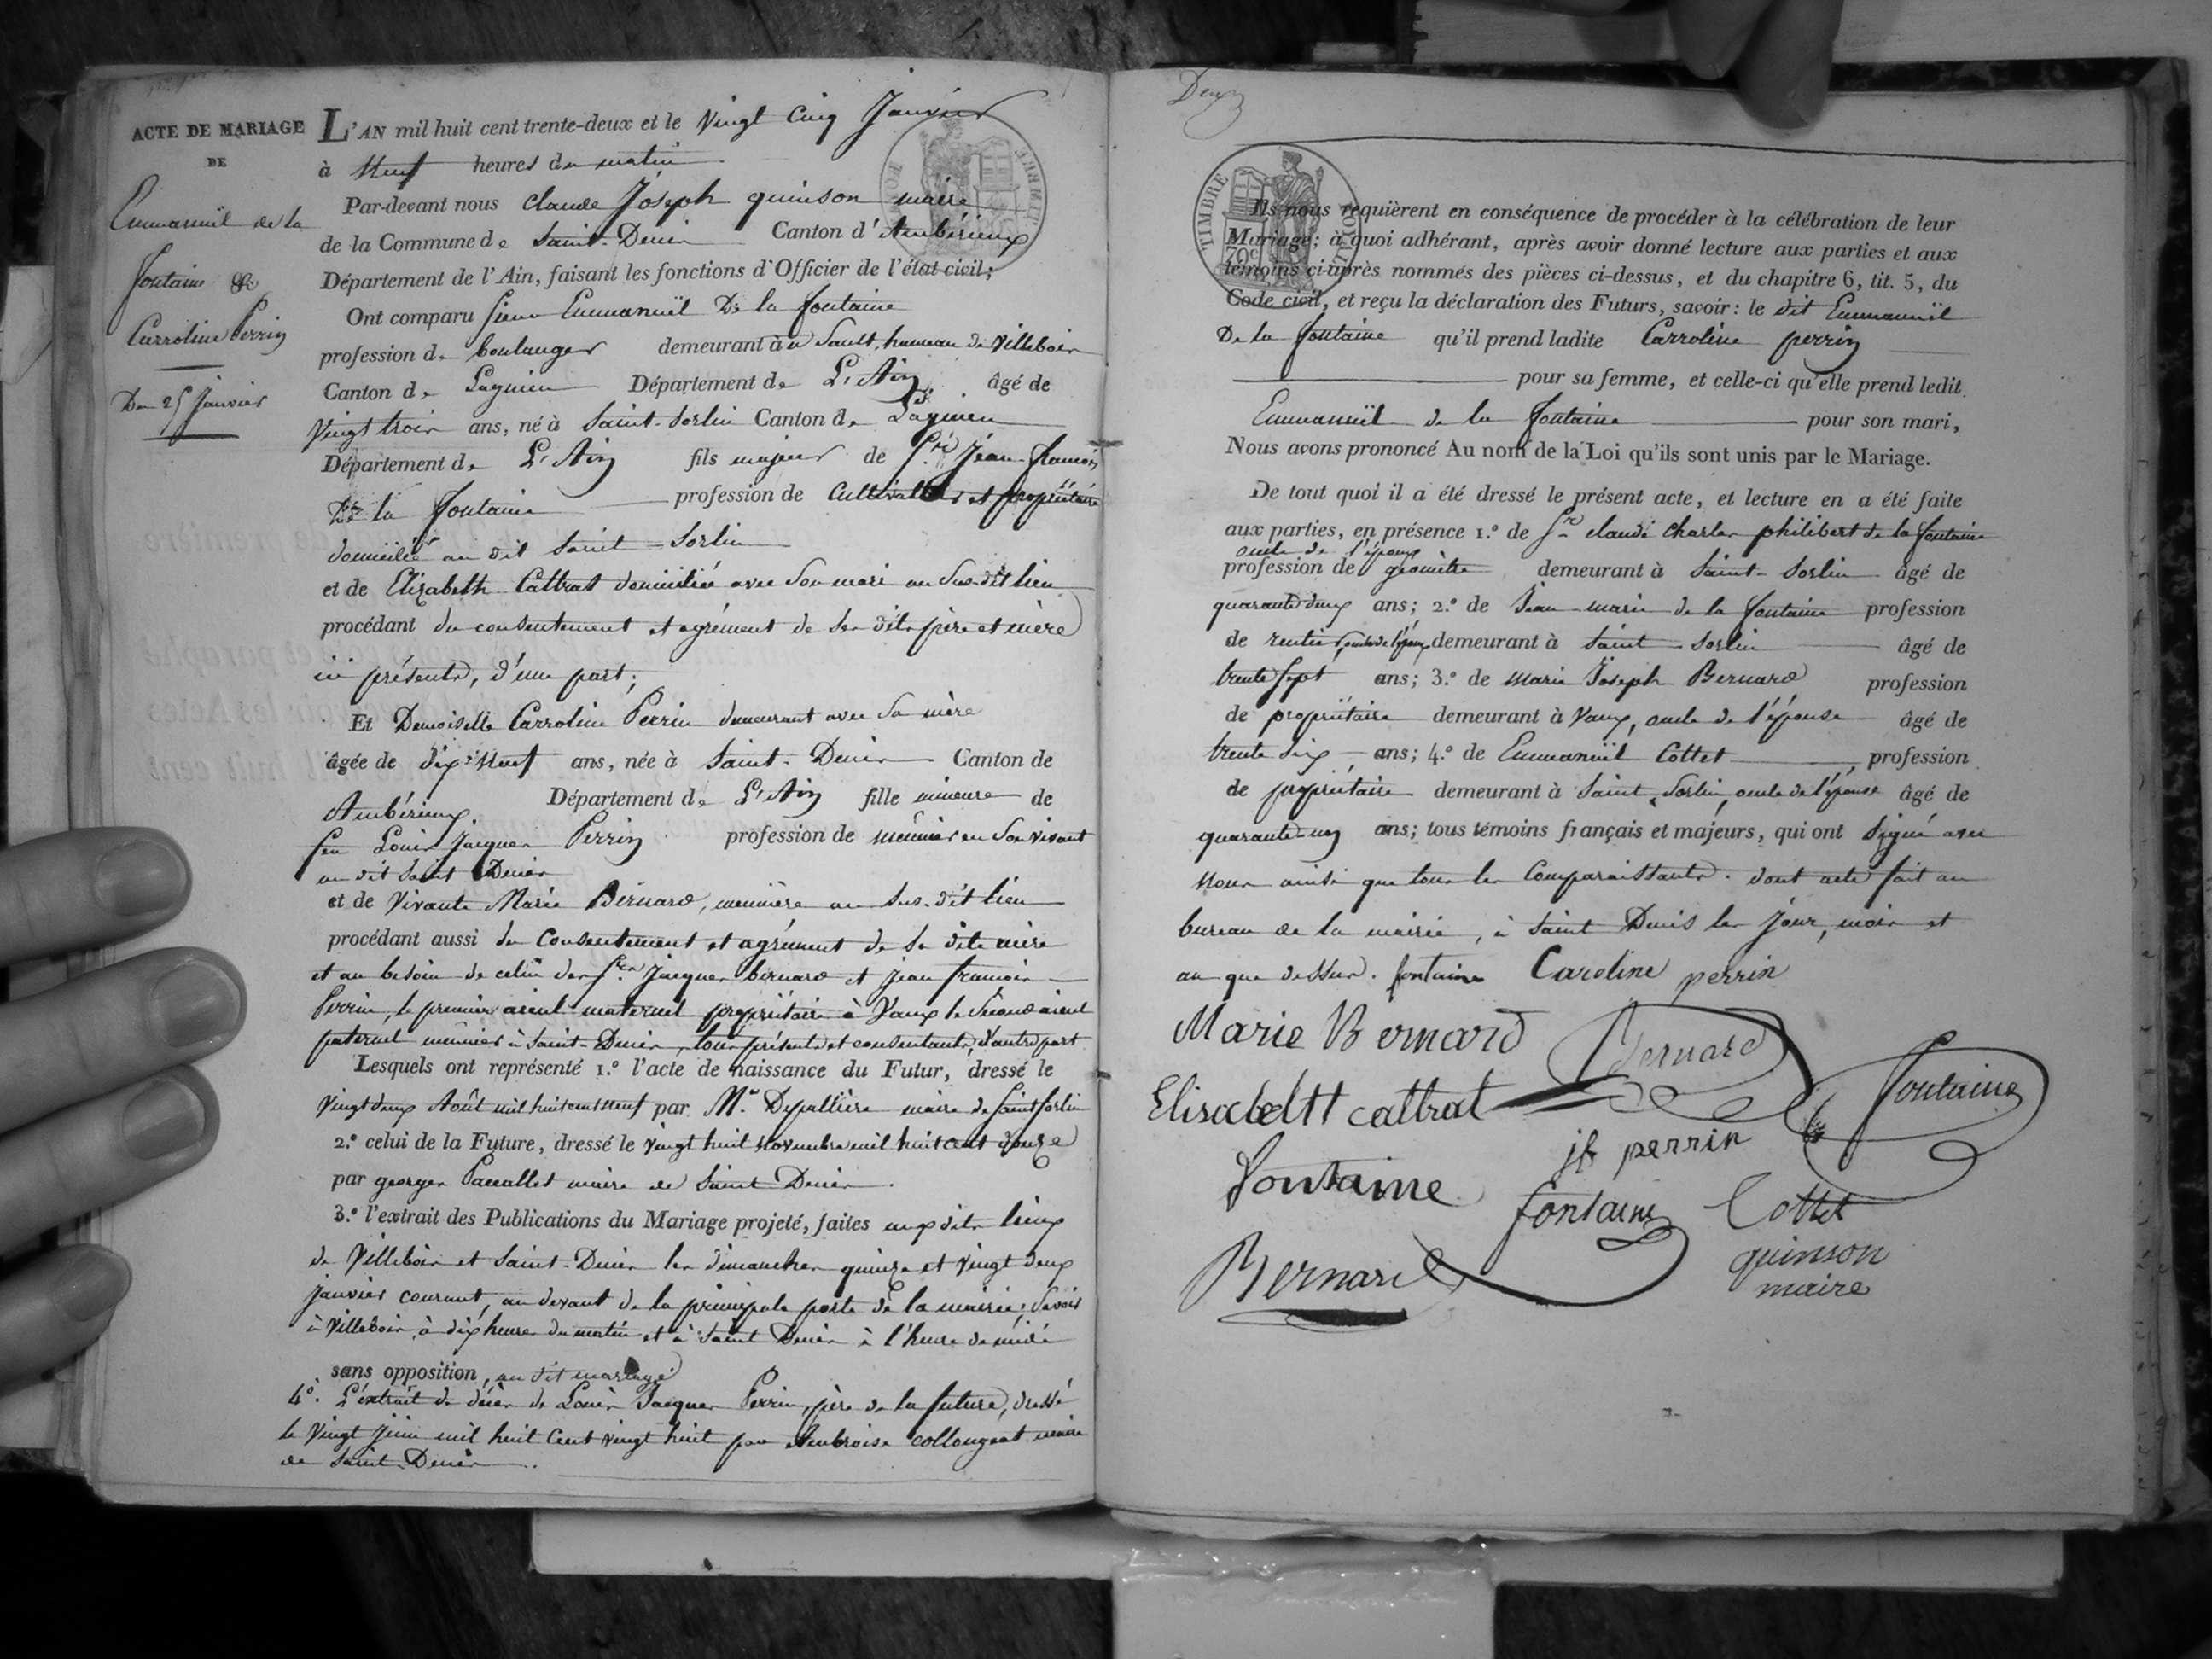 ACTE DE MARIAGE
DE
Emmanuël de la
fontaine &
Carroline Perrin
Du 25 Janvier
L'AN mil huit cent trente-deux et le Vingt Cinq Janvier
à Neuf heures du matin
Par-devant nous claude Jóseph quinson maire
de la Commune de Saint-Denis Canton d'Ambérieux
Département de l'Ain, faisant les fonctions d'Officier de l'état civil;
Ont comparu Sieur Emmanuël De la fontaine
profession de boulanger demeurant au Sault, hameau de Villebois
Canton de Lagnieu Département de L'Ain âgé de
Vingt trois ans, né à Saint-Sorlin Canton de Lagnieu
Département de L'Ain fils majeur de Sr Jéan-francois
De la fontaine profession de Cultivateur et propriétaire
domicilié au dit Saint-Sorlin
et de Elizabeth Cattrat domiciliée avec Son mari au Sus-dit lieu
procédant du consentement et agrément de ses dits père et mère
ici présents, d'une part;
Et Demoiselle Carroline Perrin demeurant avec Sa mère
âgée de dix-Neuf ans, née à Saint-Denis Canton de
Ambérieux Département de L'Ain fille mineure de
feu Louis Jacques Perrin profession de meûnier en Son vivant
au dit Saint Denis
et de Vivante Marie Bernard, meunière au Sus-dit lieu
procédant aussi du Consentement et agrément de Sa dite mère
et au besoin de celui des Srs Jacques bernard et Jean francois
Perrin, le premier aïeul maternel propriétaire à Vaux le Second aïeul
paternel meûnier à Saint-Denis, tous présents et consentants, d'autre part
Lesquels ont représenté 1.º l'acte de naissance du Futur, dressé le
Vingt deux Août mil huit cent Neuf par Mr. Depallière maire de Saint Sorlin
2.º celui de la Future, dressé le Vingt huit Novembre mil huit cent douze
par georges maire de Saint Denis.
3.º l'extrait des Publications du Mariage projeté, faites aux dits lieux
de Villebois et Saint-Denis les dimanches quinze et Vingt deux
janvier courant, au devant de la principale porte de la mairie, Savoir
à Villebois à dix heures du matin et à Saint Denis à l'heure de midi
sans opposition, au dit mariage
4º. L'éxtrait de décès de Louis Jacques Perrin, père de la future, dressé
le Vingt Juin mil huit Cent vingt huit par Ambroise collongeat maire
de Saint-Denis.
Deux
TIMBRE ROYAL
70c
Ils nous requièrent en conséquence de procéder à la célébration de leur
Mariage; à quoi adhérant, après avoir donné lecture aux parties et aux
témoins ci-après nommés des pièces ci-dessus, et du chapitre 6, tit. 5, du
Code civil, et reçu la déclaration des Futurs, savoir: le dit Emmanuël
De la fontaine qu'il prend ladite Carroline perrin
pour sa femme, et celle-ci qu'elle prend ledit
Emmanuël de la fontaine pour son mari,
Nous avons prononcé Au nom de la Loi qu'ils sont unis par le Mariage.
De tout quoi il a été dressé le présent acte, et lecture en a été faite
aux parties, en présence 1.º de Sr claude charles philibert de la fontaine
oncle de l'époux
profession de géomètre demeurant à Saint-Sorlin âgé de
quarante deux ans; 2.º de Jean-marie de la fontaine profession
de rentier, oncle de l'époux demeurant à Saint-Sorlin âgé de
trente Sept ans; 3.º de Marie Joseph Bernard profession
de propriétaire demeurant à Vaux, oncle de l'épouse âgé de
trente Six ans; 4.º de Emmanuël Cottet, profession
de propriétaire demeurant à Saint-Sorlin, oncle de l'épouse âgé de
quarante-un ans; tous témoins français et majeurs, qui ont Signé avec
Nous ainsi que tous les Comparaissants. dont acte fait au
bureau de la mairie, à Saint Denis les jour, mois et
an que dessus. fontaine Caroline perrin
Marie Bernard Bernard
Elisabeltt cattrat fontaine
jf perrin
fontaine fontaine Cottet
Bernard quinson
maire